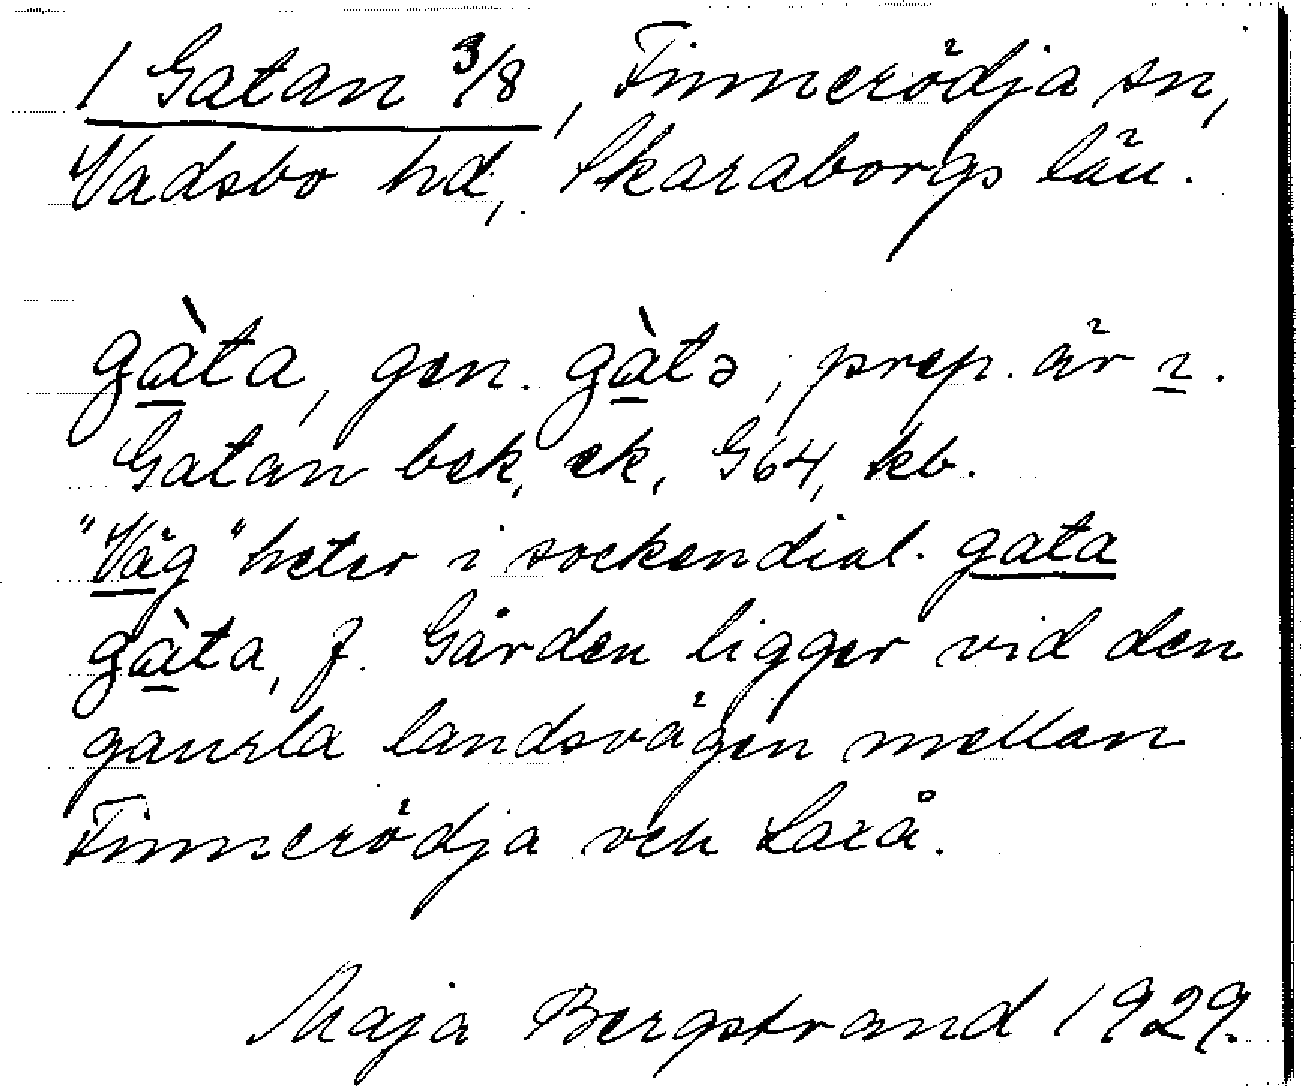 1 Gatan 3/8, Finnerödja sn,
Vadsbo hd, Skaraborgs län.
gàta, gen. gàtə, prep. är i.
Gatan bek, ek, G64, kb.
"Väg" heter i sockendial. gata
gàta, f. Gården ligger vid den
gamla landsvägen mellan
Finnerödja och Laxå.
Maja Bergstrand 1929.